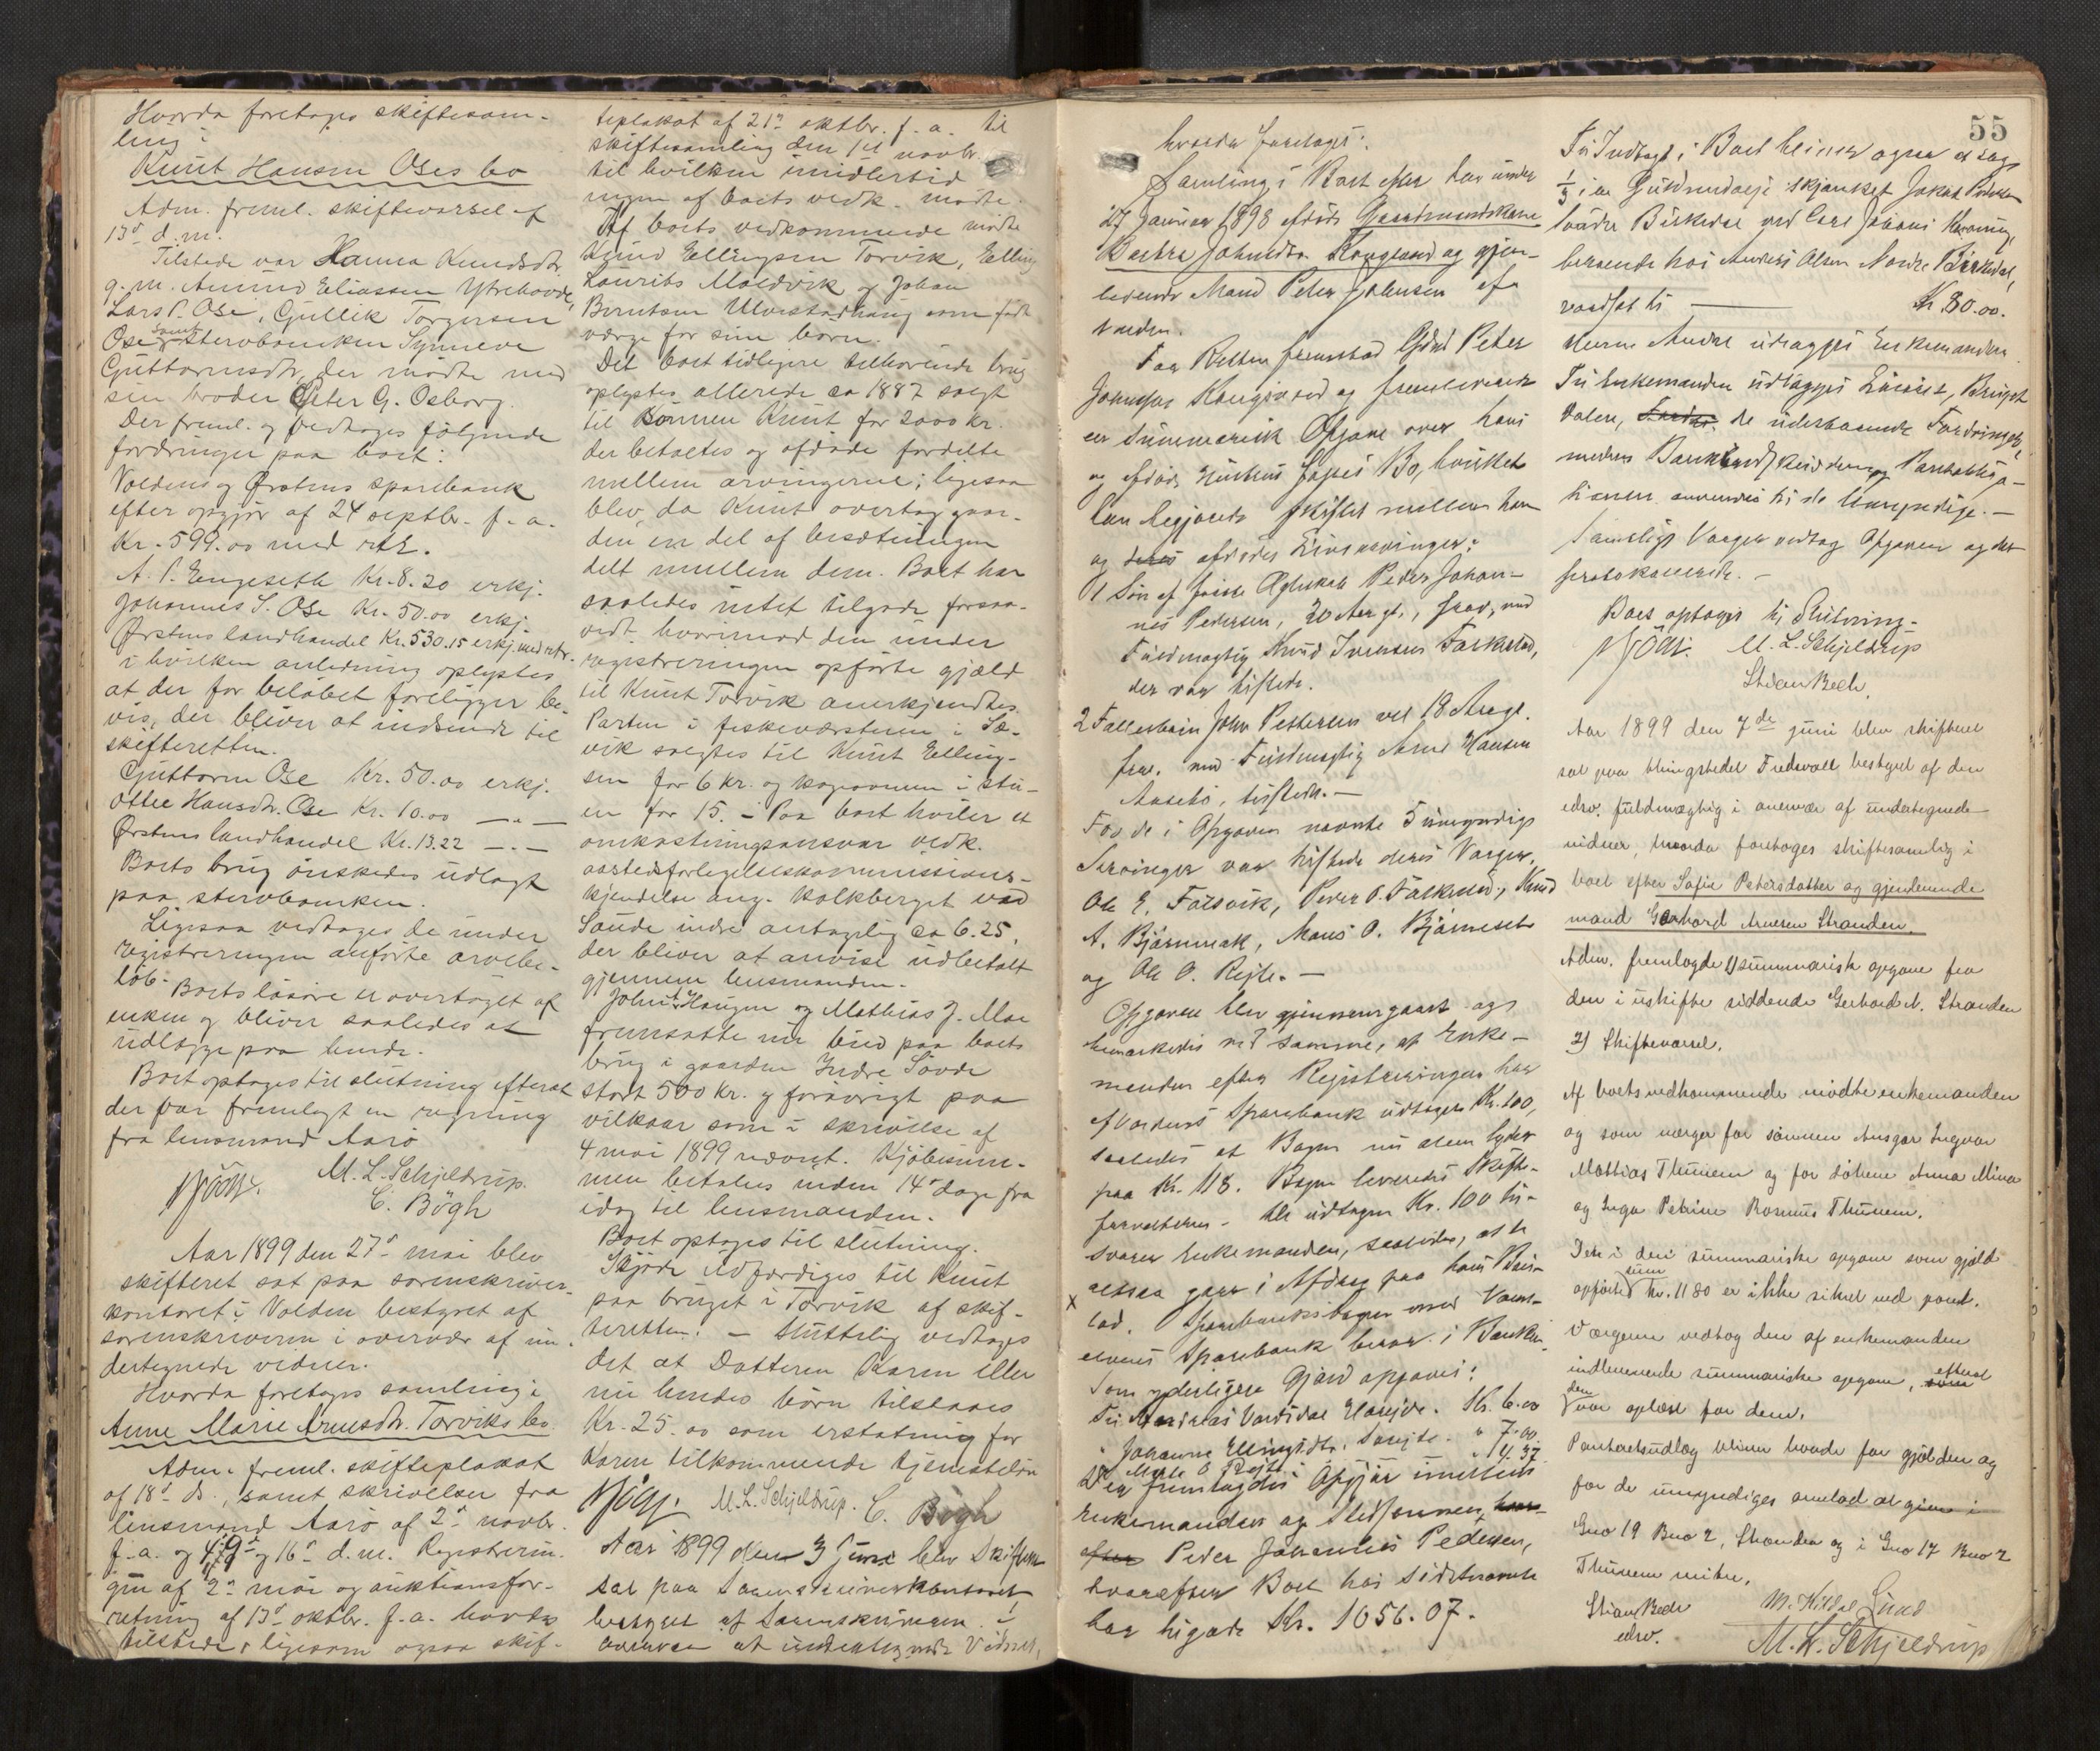 Hvorda foretages skiftesam-
ling i
Knut Hansen Oses bo
Adm. freml. skiftevarsel af
13d d.m.
Tilstede var Hanna Knudsdtr.
g.m. Amund Eliassen Ytrehovde,
Lars P. Ose, Gullik Torgersen
Ose samt Stervboenken Synneve
Guttormsdtr, der mødte med
sin broder Peter G. Osborg.
Der freml. og vedtages følgende
fordringer paa boet:
Voldens og Ørstens sparebank
efter opgjør af 24 septbr. f.a.
Kr. 599.00 med rtr.
A. P. Engeseth Kr. 8.20 erkj.
Johannes S. Ose Kr. 50.00 erkj.
Ørstens landhandel Kr. 530.15 erkj. med rtr.
i hvilken anledning oplystes
at der for beløbet foreligger be-
vis, der bliver at indsende til
skifteretten.
Guttorm Ose Kr. 50.00 erkj.
Ottee Hansdtr. Ose Kr. 10.00 — " —
Ørstens landhandel Kr. 13.22 — " —
Boets brug ønskedes udlagt
paa stervboenken.
Ligesaa vedtages de under
registreringen anførte arvebe-
løb. Boets løsøre er overtaget af
enken og bliver saaledes at
udlægge paa hende.
Boet optages til slutning efterat
der var fremlagt en regning
fra lensmand Aarø
M. L. Schjeldrup.
C. Bøgh
Aar 1899 den 27d mai blev
skifteret sat paa sorenskriver-
kontoret i Volden bestyret af
sorenskriveren i overvær af un-
dertegnede vidner.
Hvorda foretages samling i
Anne Marie Arnesdtr. Torviks bo
Adm. freml. skifteplakat
af 18d ds., samt skrivelser fra
lensmand Aarø af 2d novbr.
f.a. og 4d, 9d og 16d d.m. Registrerin-
gen af 2d mai og auktionsfor-
retning af 13d oktbr. f.a. havdes
tilstede, ligesom ogsaa skif-
teplakat af 21d oktbr. f.a. til
skiftesamling den 1st novbr.
til hvilken imidlertid
ingen af boets vedk. mødte.
Af boets vedkommende mødte
Knud Ellingsen Torvik, Elling
Laurits Moldvik og Johan
Berntsen Ulvestadhaug som født
værge for sine børn.
Det boet tidligere tilhørende brug
oplystes allerede ca 1887 solgt
til sønnen Knut for 2000 kr.
der betaltes og afdøde fordelte
mellem arvingerne; ligesaa
blev, da Knut overtog gaar-
den en del af besætningen
delt mellem dem. Boet har
saaledes intet tilgode forsaa-
vidt, hvorimod den under
registreringen opførte gjæld
til Knut Torvik anerkjendtes
Parten i fiskeværstuen i Sæ-
vik solgtes til Knut Elling-
sen for 6 kr. og kogeovnen i stu-
en for 15. - Paa boet hviler et
omkostningsansvar vedk.
aastedsforlegelseskommissions-
kjendelse ang. Kalkberget ved
Søvde indre antagelig ca 6.25,
der bliver at anvise udbetalt
gjennem lensmanden.
John Haugen og Mathias J. Moe
fremsatte nu bud paa boets
brug i gaarden Indre Søvde
stort 500 kr. og forøvrigt paa
vilkaar som i skrivelse af
4 mai 1899 nævnt. Kjøbesum-
men betales inden 14d dage fra
idag til lensmanden.
Boet optages til slutning.
Skjøde udfærdiges til Knut
paa bruget i Torvik af skif-
teretten. - Sluttelig vedtages
det at Datteren Karen eller
nu hendes børn tilstaaes
Kr. 25.00 som erstatning for
Karen tilkommende tjenesteløn
M. L. Schjeldrup. C. Bøgh
Aar 1899 den 3 Juni blev Skifteret
sat paa Sorenskriverkontoret,
bestyret af Sorenskriveren i
overvær af undertegnede Vidner,
55
hvorda foretoges:
Samling i Boet efter den under
27 Januar 1898 afdøde Gaardmandskone
Barbra Johnsdtr. Kougland og gjen-
levende Mand Peter Johnsen af
Volden.
For Retten fremstod Gdbr Peter
Johnsen og fremleverede
en summarisk Opgave over hans
og afdøde Hustrus fælles Bo, hvilket
han begjærede skiftet mellem ham
og afdødes Livsarvinger:
1 Søn af første Ægteskab Peder Johan-
nes Pedersen, 20 Aar gl., frav, med
Fuldmægtig Knud Iversen Folkestad,
der var tilstede.
2 Fællesbarn John Pettersen vel 18 Aar gl.
frav. med Fuldmægtig Hansen
tilstede. —
For de i Opgaven nævnte 5 umyndige
Arvinger var tilstede deres Værger,
Ole E. Folsvik, Peder P. Folkestad, Knud
A. Bjørneseth, Mons O. Bjørneseth
og Ole O. Rejte. —
Opgaven blev gjennemgaaet og
bemærkedes ved samme, at Enke-
manden efter Registreringen har
af Voldens Sparebank udtaget Kr. 100,
saaledes at Bogen nu alene lyder
paa Kr. 118. Bogen leveredes Skifte-
forvalteren. - De udtagne Kr. 100 til-
svarer Enkemanden, saaledes, at de
altsaa gaar i Afdrag paa hans Bos-
lod. Sparebanksbogen med
Sparebank beror i Banken
Som yderligere Gjæld opgaves:
Kr. 6.00
Johanne Ellingsdtr. " 7.00
" 14.37
Der fremlagdes Opgjør imellem
Enkemanden og Stedsønnen
Peder Johannes Pedersen,
hvorefter Boet hos Sidstnævnte
har tilgode Kr. 1056.07.
Til Indtægt i Boet bliver ogsaa at tage
1/3 i en skjænket
beroende hos Anders Olsen Nordre Birkedal,
værdsat til — Kr. 80.00.
denne Andel udlægges Enkemanden.
Til Enkemanden udlægges Løsøret, Bruget
Dalen, de udestaaende Fordringer,
medens
anvendes til de Umyndige. —
Samtlige Værger vedtog Opgaven og det
protokollerede. —
Boet optages til Slutning -
M. L. Schjeldrup
Stian Bech
Aar 1899 den 7de juni blev skifteret
sat paa thingstedet Fredsvoll bestyret af den
edsv. fuldmægtig i overvær af undertegnede
vidner, hvorda foretoges skiftesamling i
boet efter Sofie Petersdatter og gjenlevende
mand Gerhard Arnesen Stranden.
Adm. fremlagde 1) summarisk opgave fra
den i uskifte siddende Gerhard A. Stranden
2) Skiftevarsel.
Af boets vedkommende mødte enkemanden
og som værger for sønnen Ansgar Ingvar
Mathias Thunem og for døtrene Anna Mina
og Inga Petrine Rasmus Thunem.
Den i den summariske opgave som gjæld
opførte sum Kr. 1180 er ikke sikret ved pant.
Værgerne vedtog den af enkemanden
indleverede summariske opgave, efterat
den var oplæst for dem.
Panteretsudlæg bliver baade for gjælden og
for de umyndiges arvelod at give i
Gno 19 Bno 2, Stranden og i Gno 17 Bno 2
Thunem mitre.
Stian Bech
edsv.
M. Lund
M. L. Schjeldrup